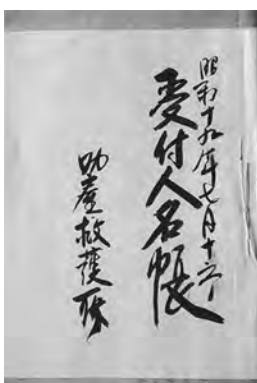 昭和十九年七月十六日
受付人名帳
助産救護部